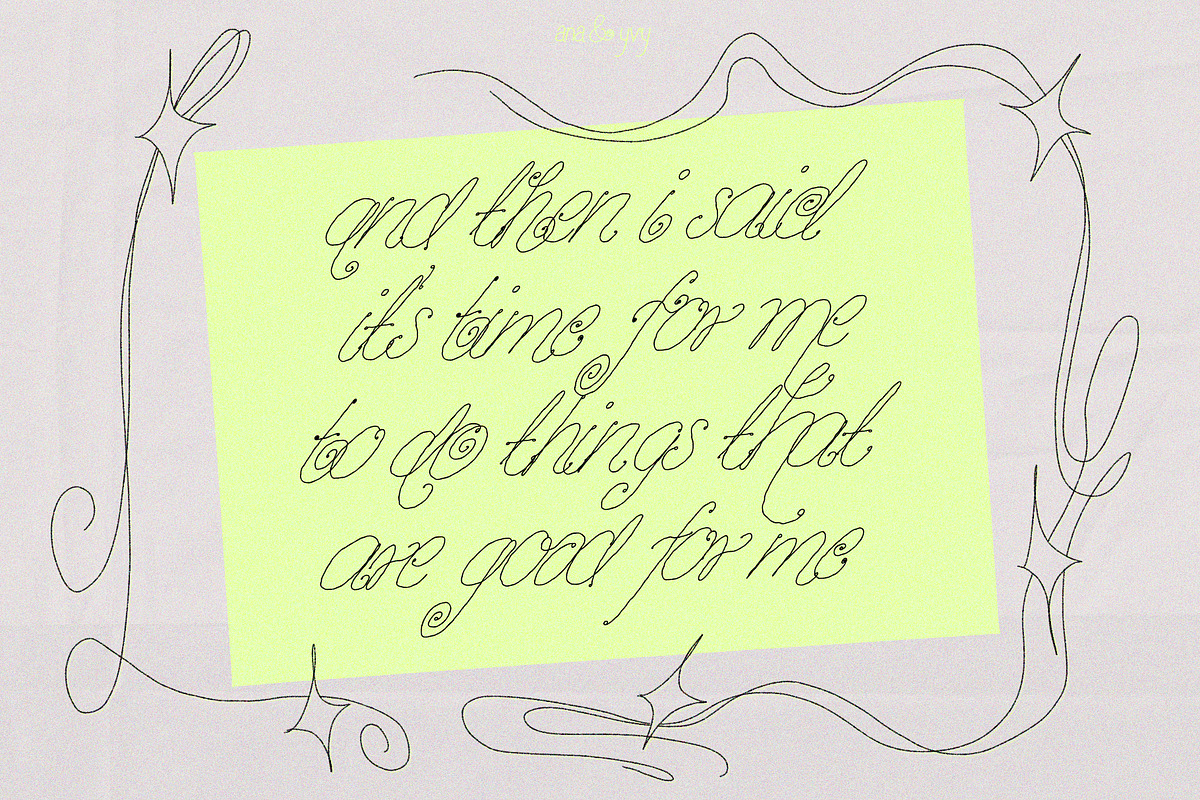 ana & yvy
and then i said
it's time for me
to do things that
are good for me